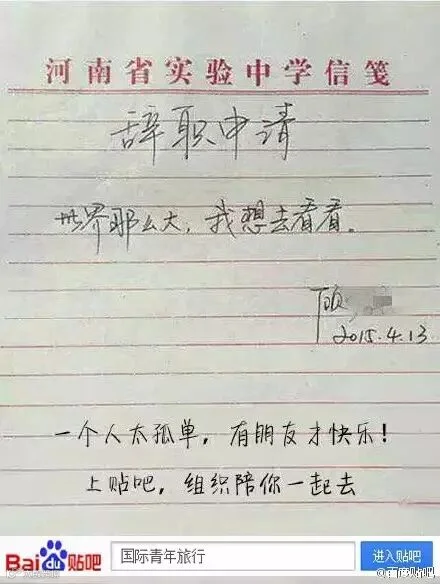 河南省实验中学信笺
辞职申请
世界那么大，我想去看看。
顾
2015.4.13
一个人太孤单，有朋友才快乐！
上贴吧，组织陪你一起去
Bai du 贴吧
国际青年旅行
进入贴吧
@百度贴吧